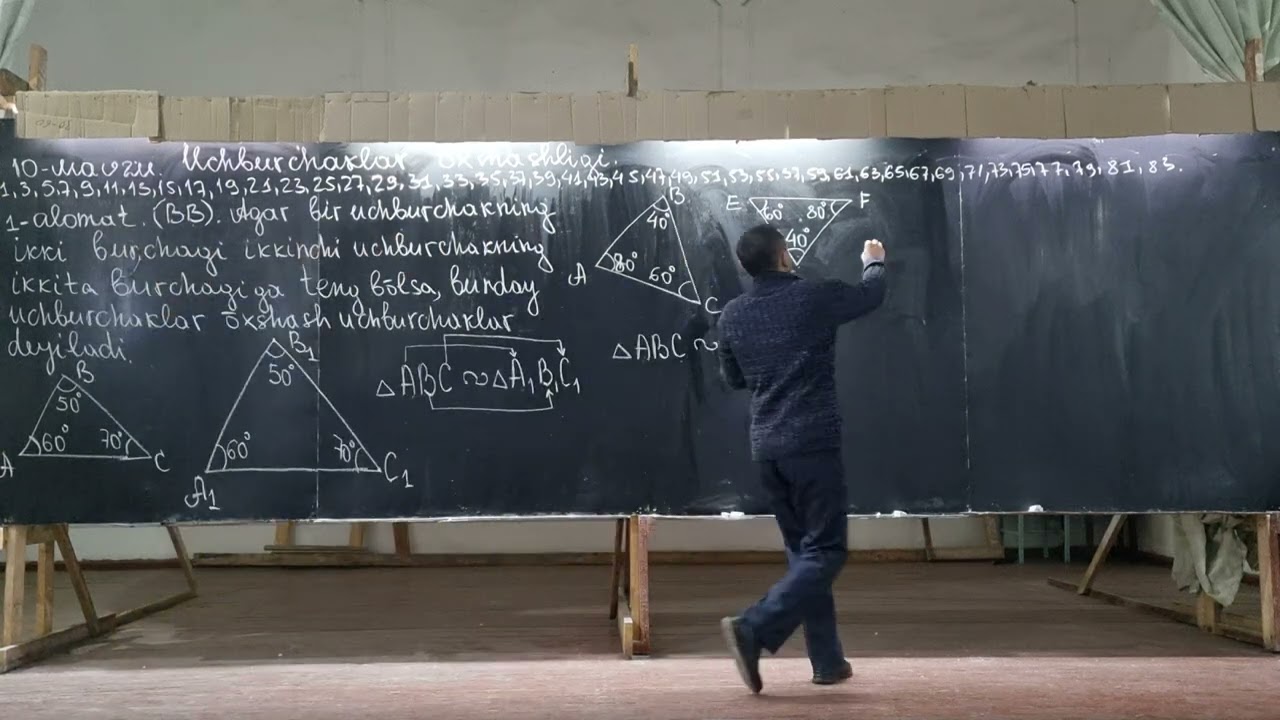 10-mavzu. Uchburchaklar o'xshashligi.
1,3,5,7,9,11,13,15,17,19,21,23,25,27,29,31,33,35,37,39,41,43,45,47,49,51,53,55,57,59,61,63,65,67,69,71,73,75,77,79,81,83.
1-alomat. (BB). Agar bir uchburchakning
ikki burchagi ikkinchi uchburchakning
ikkita burchagiga teng bōlsa, bunday
uchburchaklar ōxshash uchburchaklar
deyiladi.
B
50°
A 60° 70° C
B₁
50°
60° 70°
A₁ C₁
△ABC ∾ △A₁B₁C₁
B
40°
A 80° 60° C
E 60° 80° F
40°
△ABC ∾